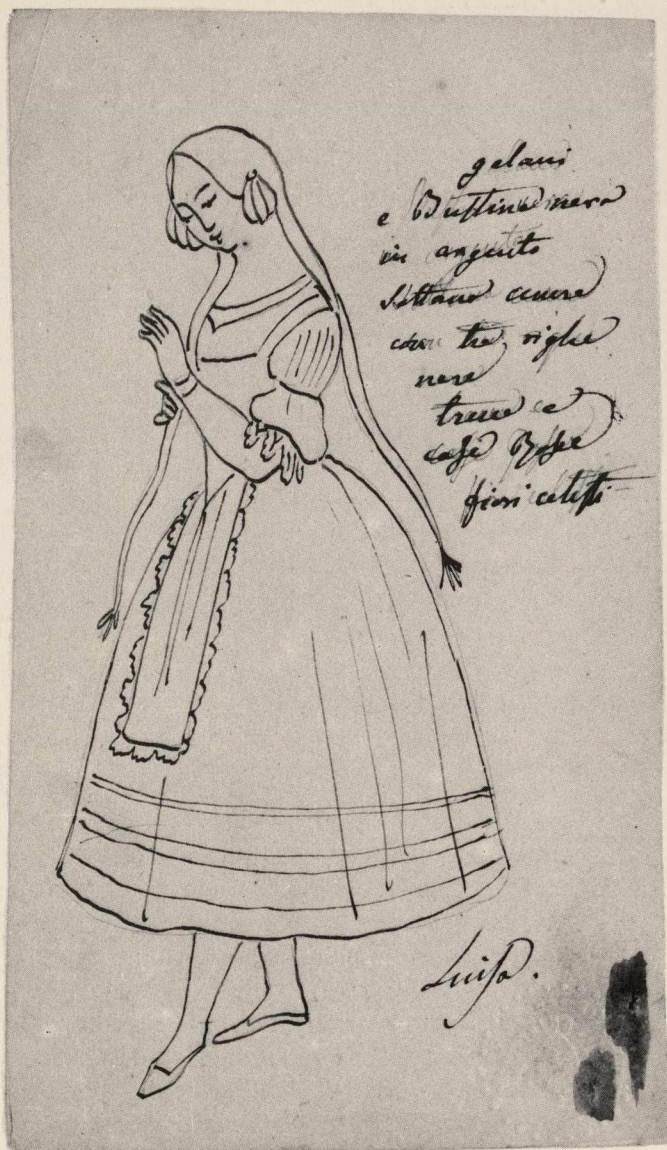 e Bustino nero
in argento
Sottana cenere
con tre righe
nere
trecce e
Rose
fiori celesti
Luisa.